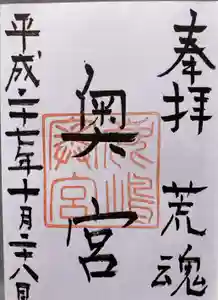 奉拝 荒魂
奥宮
平成二十七年十月二十八日